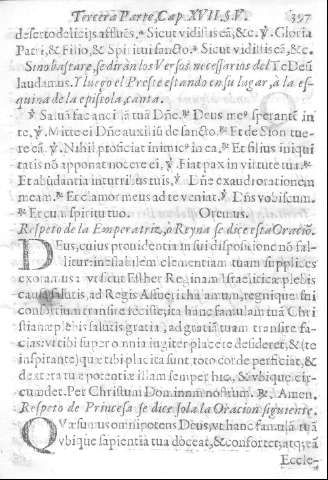 Tercera Parte, Cap. XVII. §. V. 397
deserto delicijs affluēs. * Sicut vidistis eā, &c. ℣. Gloria
Patri, & Filio, & Spiritui sancto. * Sicut vidistis eā, &c.
Si no bastare, se diràn los Versos necessarios del Te Deū
laudamus. Y luego el Preste estando en su lugar, a la es-
quina de la epistola, canta.
℣. Saluā fac ancillā tuā Dñe. ℟. Deus meꝰ sperantē in
te. ℣. Mitte ei Dñe auxiliū de sancto. ℟. Et de Sion tue-
re eā. ℣. Nihil proficiat inimicꝰ in ea. ℟. Et filius iniqui
tatis nō apponat nocere ei. ℣. Fiat pax in virtute tua. ℟.
Et abūdantia in turribus tuis. ℣. Dñe exaudi orationem
meam. ℟. Et clamor meus ad te veniat. ℣. Dñs vobiscum.
℟. Et cum spiritu tuo. Oremus.
Respeto de la Emperatriz, o Reyna se dice esta Oraciō.
DEus, cuius prouidentia in sui dispositione nō fal-
litur: inestabilem clementiam tuam supplices
exoramus: vt sicut Esther Reginam Israeliticæ plebis
causa salutis, ad Regis Assueri thalamum, regnique sui
consortium transire fecisti; ita hanc famulam tuā Chri
stianæ plebis salutis gratia, ad gratiā tuam transire fa-
cias: vt tibi super omnia iugiter placere desideret, & (te
inspirante) quæ tibi placita sunt toto corde perficiat, &
dextera tuæ potentiæ illam semper hic, & vbique cir-
cundet. Per Christum Dominum nostrum. ℟. Amen.
Respeto de Princesa se dice sola la Oracion siguiente.
QVæsumus omnipotens Deus, vt hanc famulā tuā
vbique sapientia tua doceat, & confortet, atq; eā
Eccle-